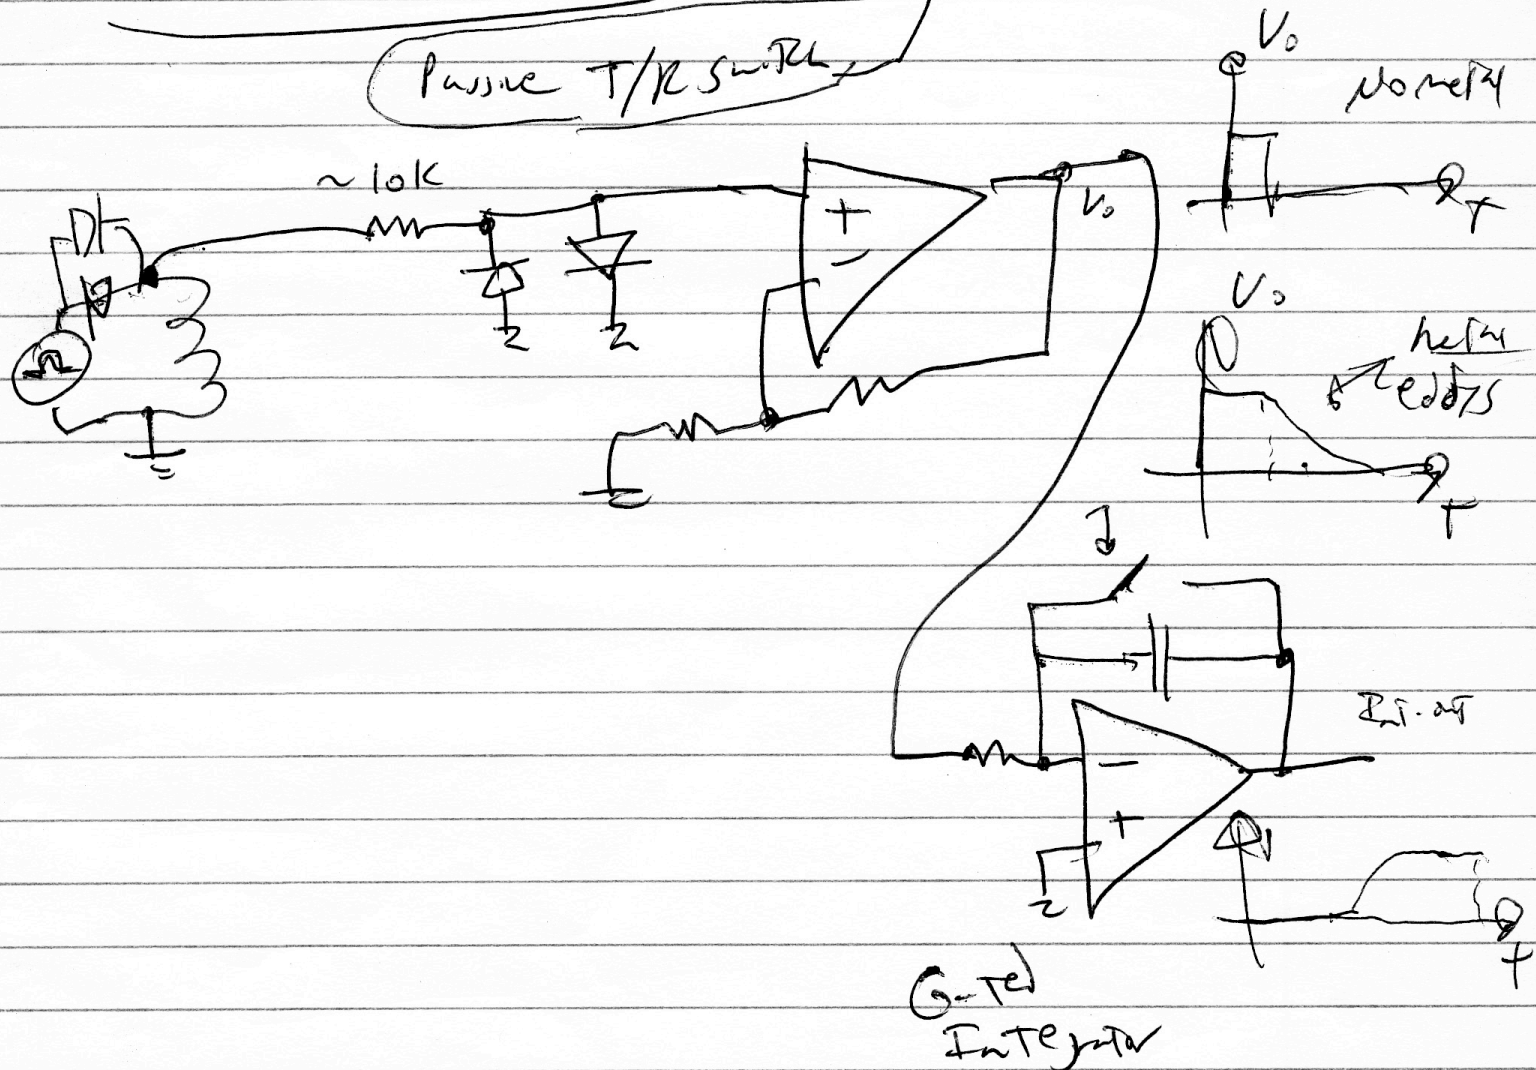 Passive T/R Switch
~10K
+
-
Vo
Vo
No metal
T
Vo
Metal
eddys
T
Int. out
-
+
T
Gated
Integrator